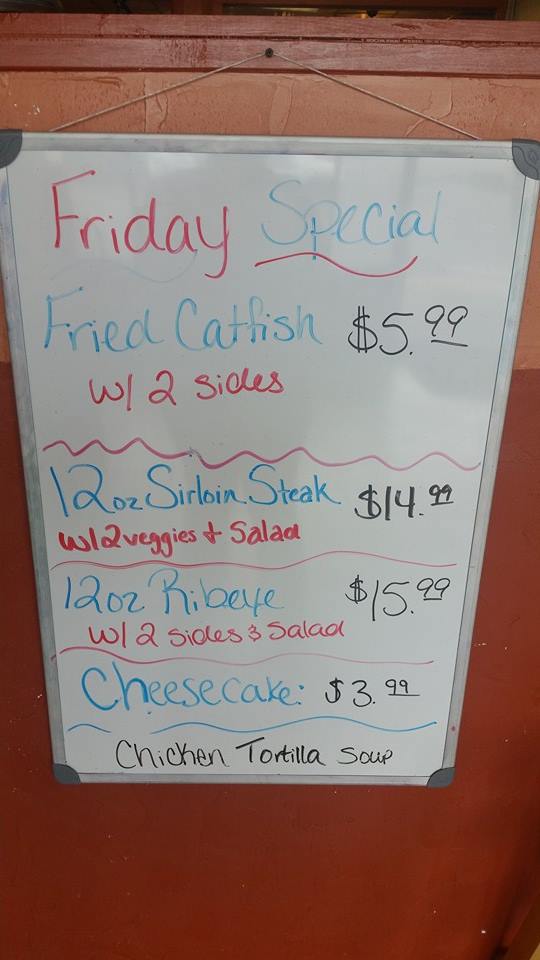 Friday Special
Fried Catfish $5.99
w/ 2 sides
12oz Sirloin Steak $14.99
w/2 veggies + Salad
12oz Ribeye $15.99
w/ 2 sides & Salad
Cheesecake: $3.99
Chicken Tortilla Soup